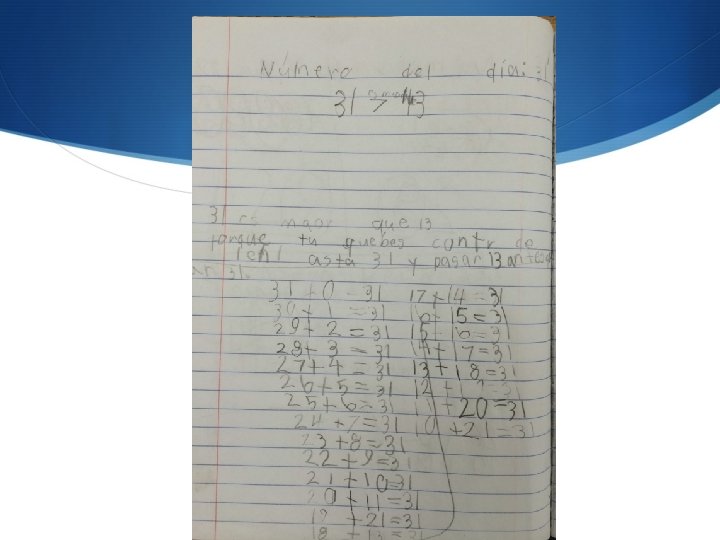 Número del día:
31 > 13
31 es maor que 13
porque tu quebes contr de
1 asta 31 y pasar 13 antes
31.
31 + 0 = 31
30 + 1 = 31
29 + 2 = 31
28 + 3 = 31
27 + 4 = 31
26 + 5 = 31
25 + 6 = 31
24 + 7 = 31
23 + 8 = 31
22 + 9 = 31
21 + 10 = 31
20 + 11 = 31
19 + 21 = 31
18 + 13 = 31
17 + 14 = 31
16 + 15 = 31
15 + 16 = 31
14 + 17 = 31
13 + 18 = 31
12 + 19 = 31
11 + 20 = 31
10 + 21 = 31